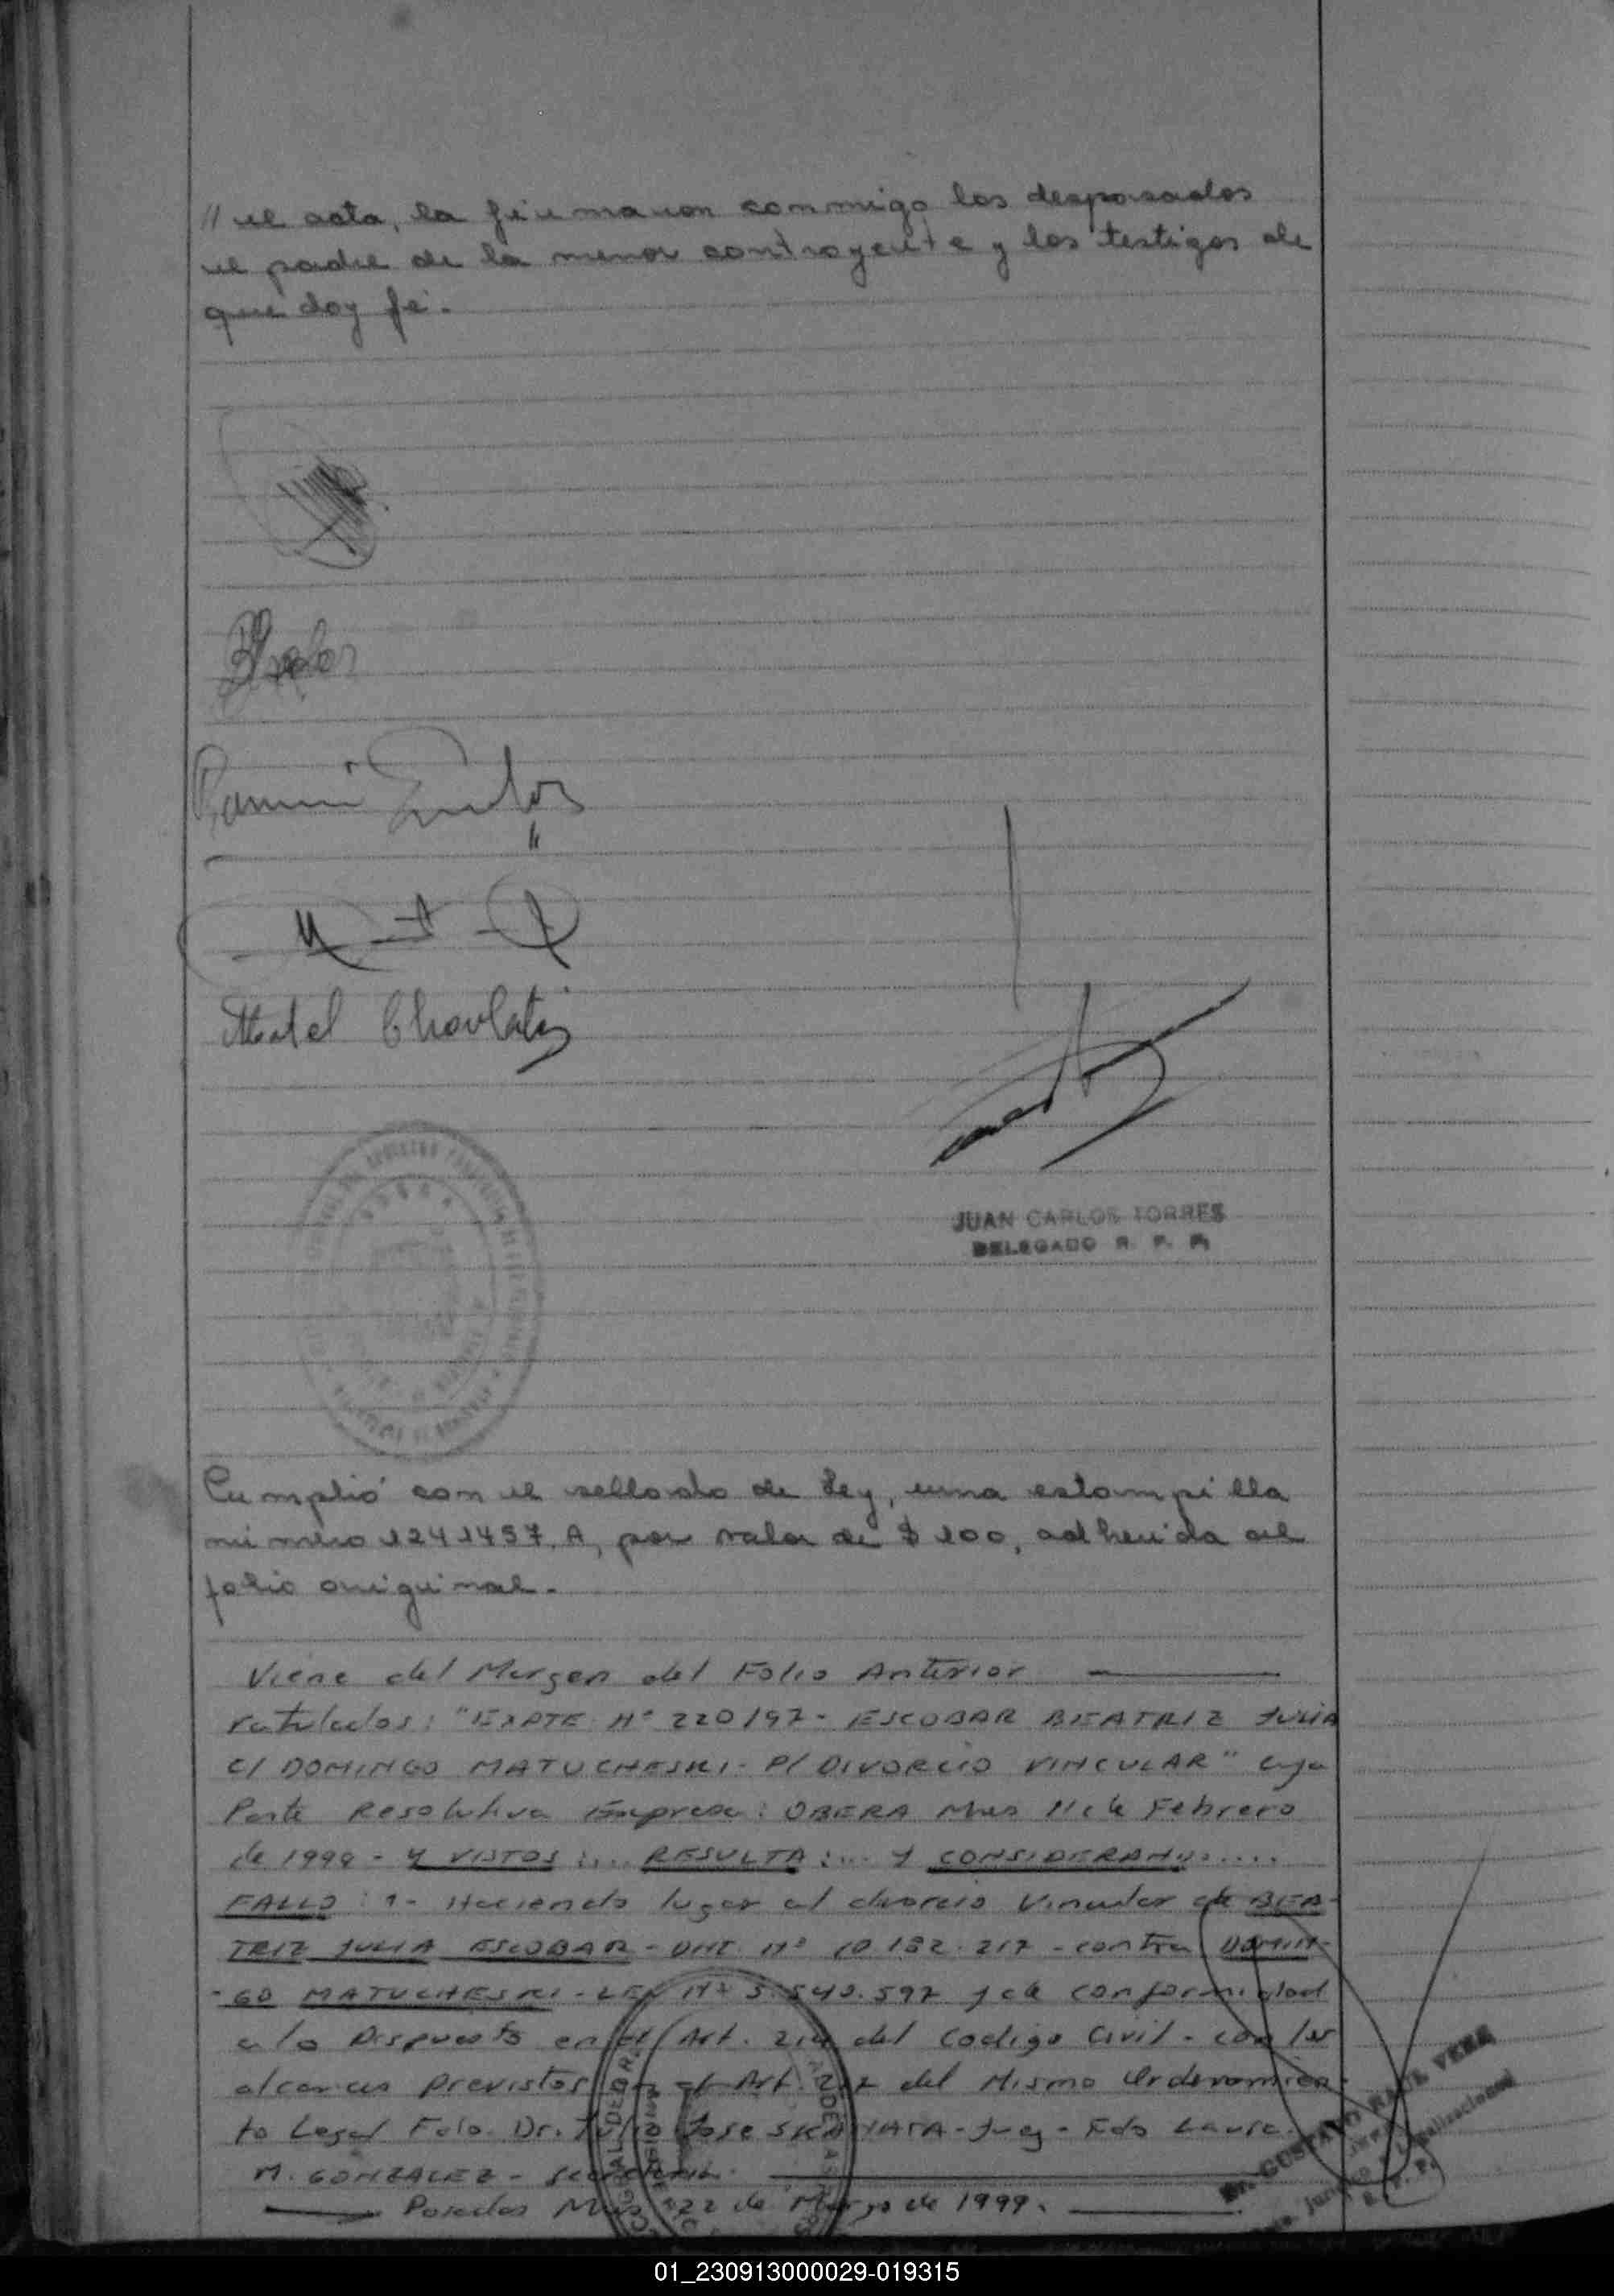 // el acta, la firmaron conmigo los desposados
el padre de la menor contrayente y los testigos de
que doy fé.
Ramón
JUAN CARLOS TORRES
DELEGADO R. P. P.
Cumplió con el sellado de Ley, una estampilla
número 1241457. A, por valor de $ 100, adherida al
folio original.
Viene del Margen del Folio Anterior
ratulados: "EXPTE Nº 220/97 - ESCOBAR BEATRIZ JULIA
C/ DOMINGO MATUCHESKI - P/ DIVORCIO VINCULAR" cuya
Parte Resolutiva Expresa: OBERA Mnes 11 de Febrero
de 1999 - Y VISTOS:... RESULTA:... Y CONSIDERANDO.....
FALLO: 1- Haciendo lugar al divorcio Vincular de BEA-
TRIZ JULIA ESCOBAR - DNI. Nº 10.182.217 - contra DOMIN-
-GO MATUCHESKI - LE Nº 5.540.597 y de conformidad
a lo Dispuesto en el Art. 214 del Codigo Civil - con los
alcances previstos en el Art. 217 del Mismo Ordenamien-
to Legal Fdo. Dr. Julio Jose SKANATA - Juez - Fdo Laura
M. GONZALEZ - Secretaria.
Posadas Mnes 22 de Marzo de 1999.
Dr. GUSTAVO RAUL VERA
R. P. P.
01_230913000029-019315